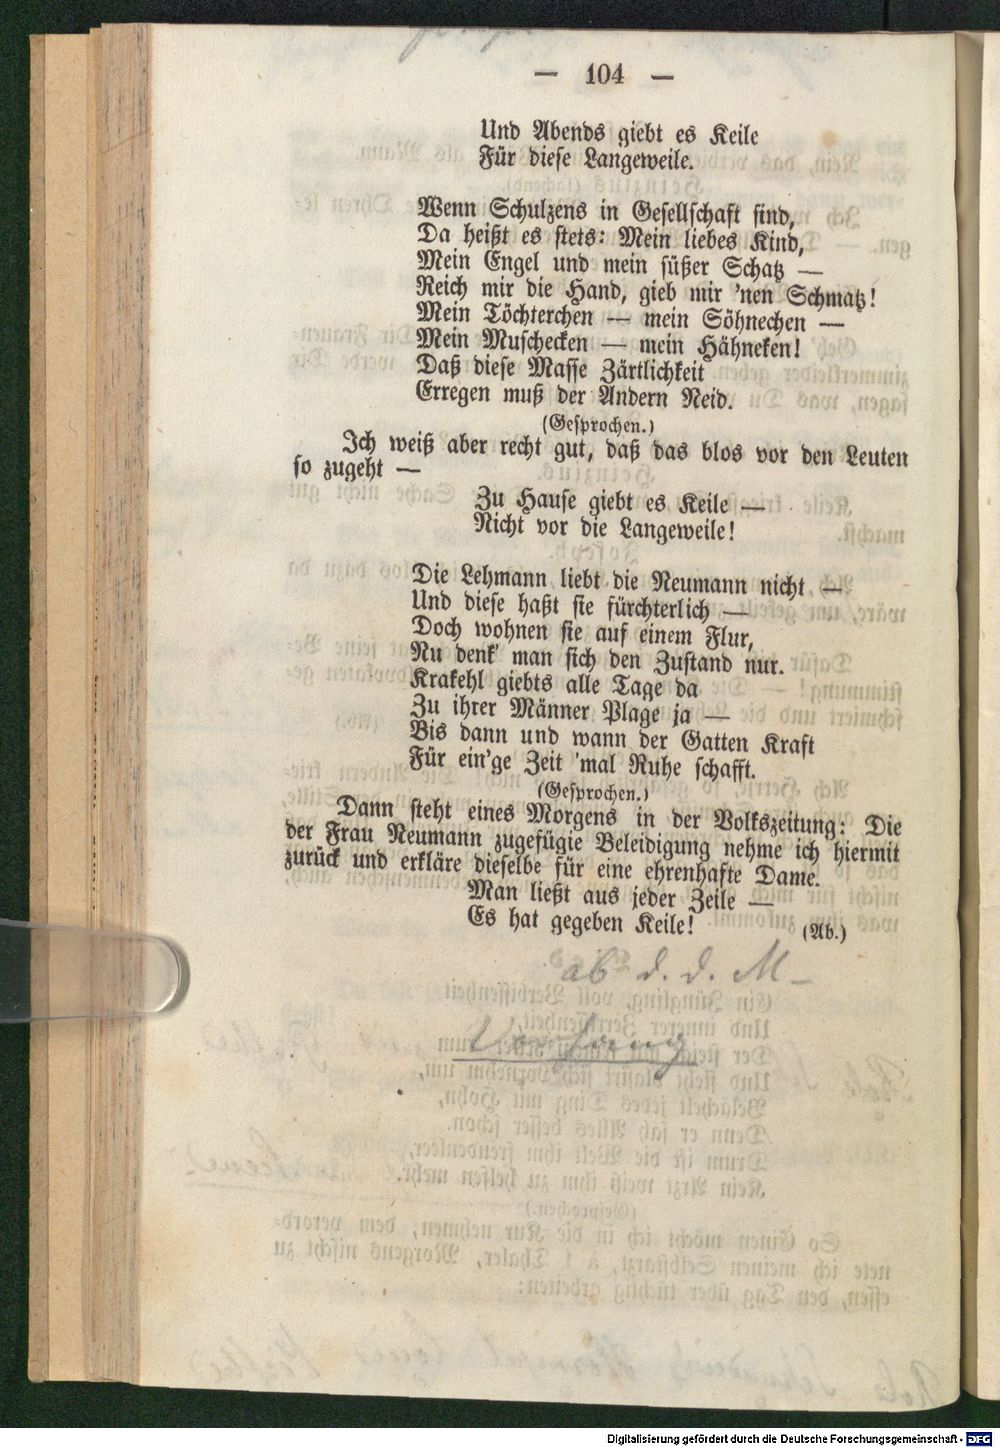 — 104 —
Und Abends giebt es Keile
Für diese Langeweile.
Wenn Schulzens in Gesellschaft sind,
Da heißt es stets: Mein liebes Kind,
Mein Engel und mein süßer Schatz —
Reich mir die Hand, gieb mir 'nen Schmatz!
Mein Töchterchen — mein Söhnechen —
Mein Muschecken — mein Hähneken!
Daß diese Masse Zärtlichkeit
Erregen muß der Andern Neid.
(Gesprochen.)
Ich weiß aber recht gut, daß das blos vor den Leuten
so zugeht —
Zu Hause giebt es Keile —
Nicht vor die Langeweile!
Die Lehmann liebt die Neumann nicht —
Und diese haßt sie fürchterlich —
Doch wohnen sie auf einem Flur,
Nu denk' man sich den Zustand nur.
Krakehl giebts alle Tage da
Zu ihrer Männer Plage ja —
Bis dann und wann der Gatten Kraft
Für ein'ge Zeit 'mal Ruhe schafft.
(Gesprochen.)
Dann steht eines Morgens in der Volkszeitung: Die
der Frau Neumann zugefügie Beleidigung nehme ich hiermit
zurück und erkläre dieselbe für eine ehrenhafte Dame.
Man ließt aus jeder Zeile —
Es hat gegeben Keile!
(Ab.)
ab d. d. M—
Vorhang
Digitalisierung gefördert durch die Deutsche Forschungsgemeinschaft - DFG